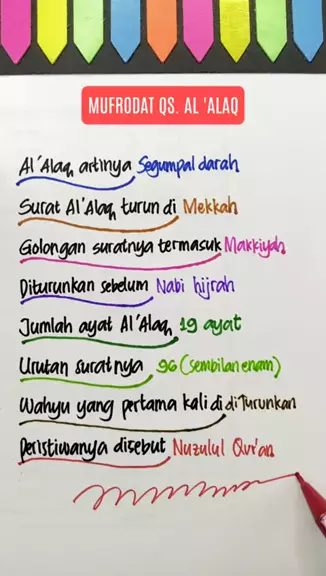 MUFRODAT QS. AL 'ALAQ
Al'Alaq artinya Segumpal darah
Surat Al'Alaq turun di Mekkah
Golongan suratnya termasuk Makkiyah
Diturunkan sebelum Nabi hijrah
Jumlah ayat Al'Alaq 19 ayat
Urutan suratnya 96 (sembilan enam)
Wahyu yang pertama kali di diTurunkan
Peristiwanya disebut Nuzulul Qur'an